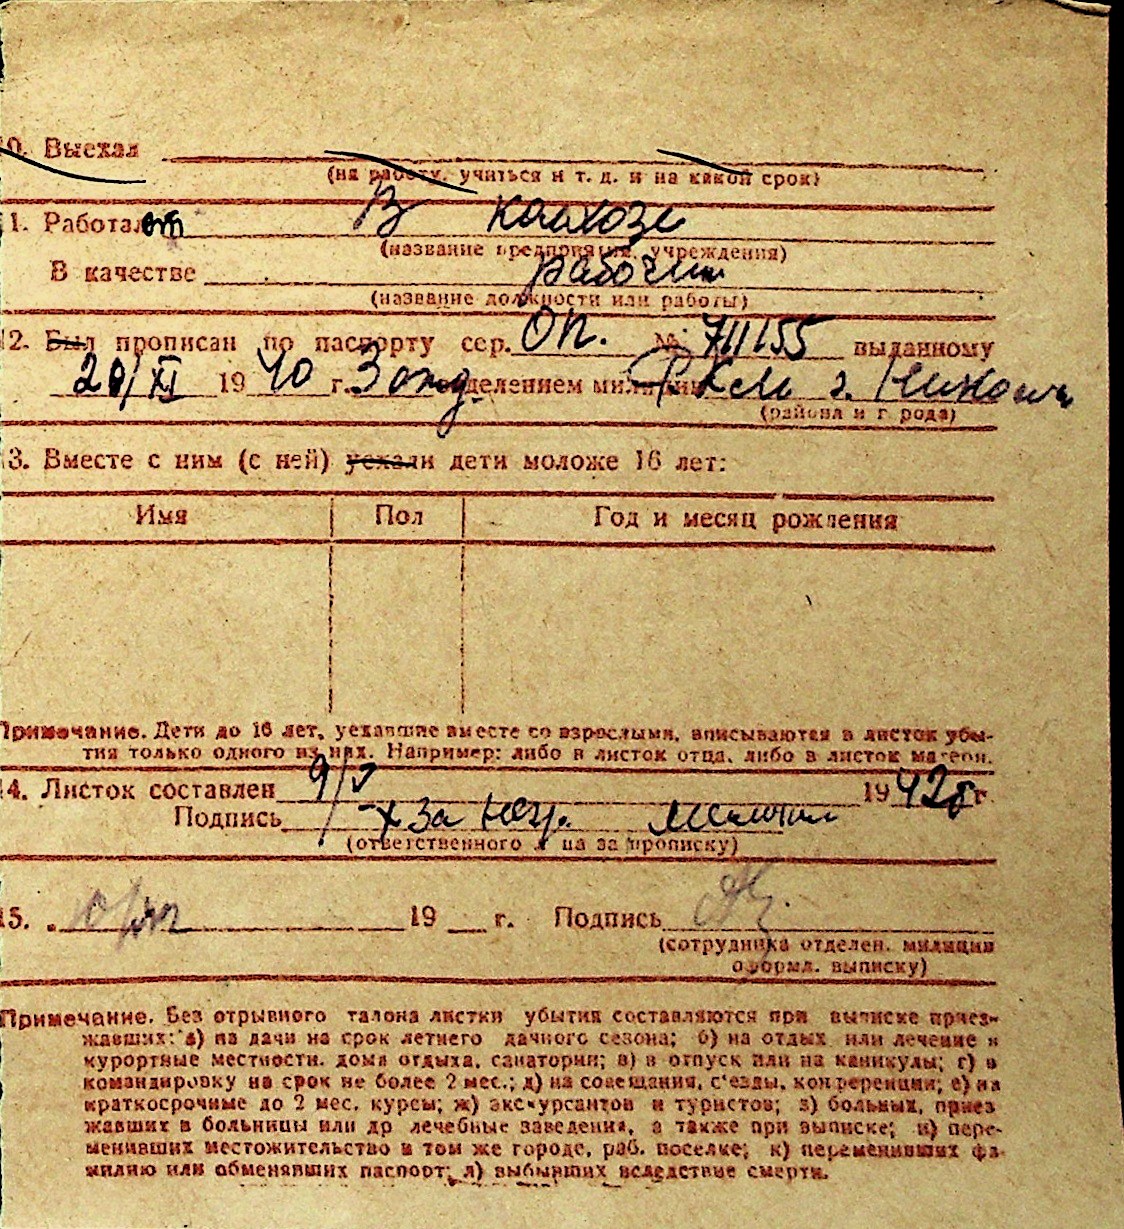 0. Выехал
(на работу, учиться и т. д. и на какой срок)
1. Работал В колхозе
(название предприятия, учреждения)
В качестве рабочий
(название должности или работы)
2. Был прописан по паспорту сер. ОП. № 711155 выданному
20/XI 19 40 г. 3 отд. отделением милиции РКМ г.
(района и города)
3. Вместе с ним (с ней) уехали дети моложе 16 лет:
Имя Пол Год и месяц рождения
Примечание. Дети до 16 лет, уехавшие вместе со взрослыми, вписываются в листок убы-
тия только одного из них. Например: либо в листок отца, либо в листок матери.
4. Листок составлен 9/V 19 42 г.
Подпись За
(ответственного лица за прописку)
15. 19 г. Подпись
(сотрудника отделен. милиции
оформл. выписку)
Примечание. Без отрывного талона листки убытия составляются при выписке приез-
жавших: а) на дачи на срок летнего дачного сезона; б) на отдых или лечение в
курортные местности, дома отдыха, санатории; в) в отпуск или на каникулы; г) в
командировку на срок не более 2 мес.; д) на совещания, с'езды, конференции; е) на
краткосрочные до 2 мес. курсы; ж) экскурсантов и туристов; з) больных, приез
жавших в больницы или др лечебные заведения, а также при выписке; и) пере-
менивших местожительство в том же городе, раб. поселке; к) переменивших фа-
милию или обменявших паспорт; л) выбывших вследствие смерти.